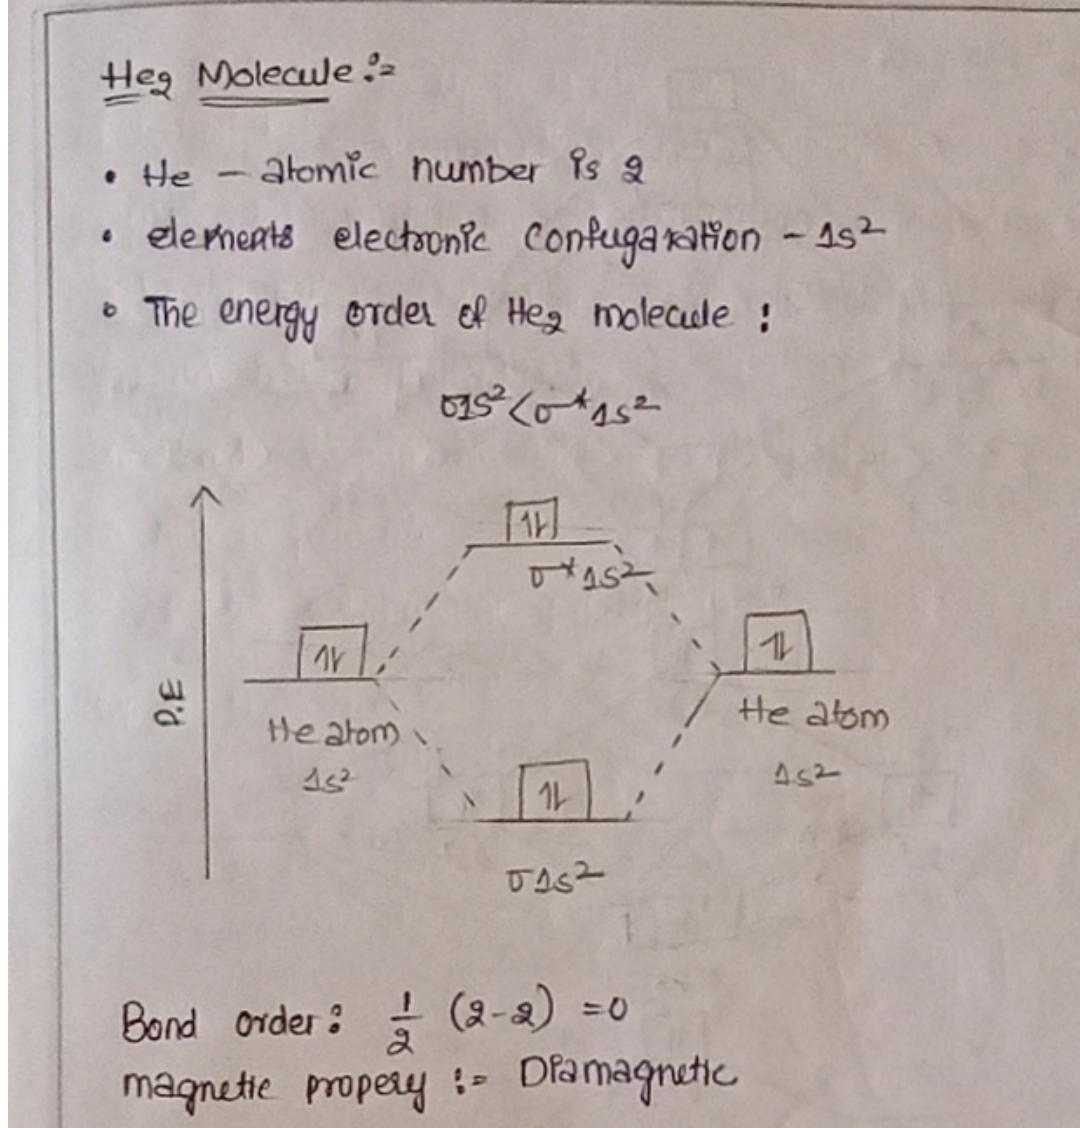 He₂ Molecule :-
• He - atomic number is 2
• elements electronic confugaration - 1s²
• The energy order of He₂ molecule :
σ1s² < σ*1s²
↑↓
σ*1s²
↑↓
↑↓
P.E
He atom
He atom
1s²
1s²
↑↓
σ1s²
Bond order : 1/2 (2-2) = 0
magnetic propery :- Diamagnetic